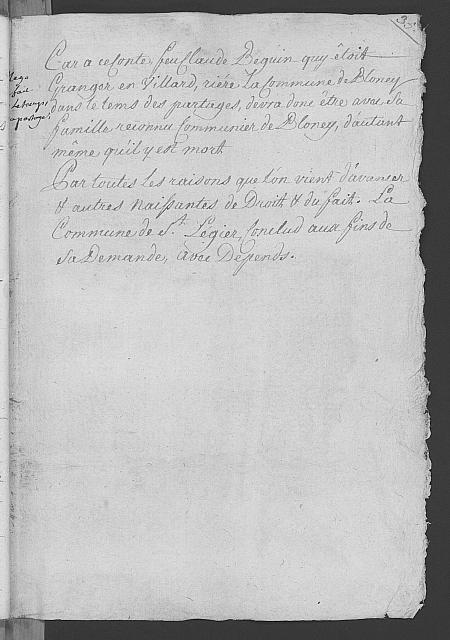 35.
Car a ce conte, feu Claude Beguin quy étoit
Granger en Villard, riére La Commune de Bloney
dans le tems des partages, devra donc être avec sa
famille reconnu Communier de Bloney, d'autant
même quil y est mort
Par toutes les raisons que l'on vient d'avanser
& autres Naissantes de Droit & du fait. La
Commune de St. Légier, Conclud aux fins de
Sa Demande, avec Dépends.